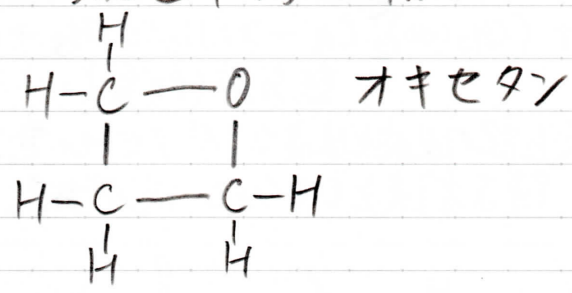 H
H-C-O オキセタン
H-C-C-H
H H